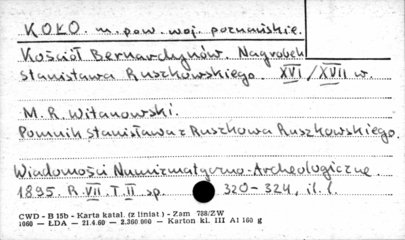 KOŁO. m. pow. woj. poznańskie.
Kościół Bernardynów. Nagrobek
Stanisława Ruszkowskiego. XVI/XVII w.
M. R. Witanowski.
Pomnik Stanisława z Ruszkowa Ruszkowskiego.
Wiadomości Numizmatyczno-Archeologiczne
1895. R. VII. T. II sp. 320-324, il. 1.
CWD - B 15b - Karta katal. (z liniat) - Zam 788/ZW
1060 — ŁDA — 21.4.60 — 2.360 000 — Karton kl. III A1 160 g